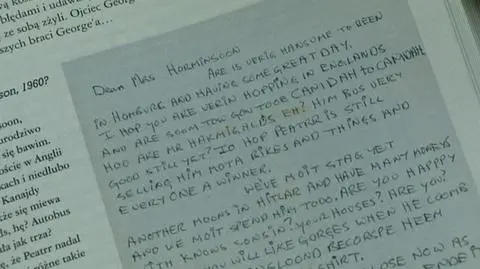 błędami i udawa
ze sobą żyli. Ojciec George
szych braci George'a…
son, 1960?
soon,
urodziwo
się bawim.
ście w Anglii
kach i niedlubo
Kanajdy
że się miewa
ls, hę? Autobus
la jak trza?
Peatrr nadal
różne takie
Dear Mrs HORMINSOON
ARE IS VERIG HANSUME TO BEEN
IN HOMBURG AND HAVING SOME GREAT DAY.
I HOP YOU ARE VERIN HOPPING IN ENGLANDS
AND ARE SOOM TOW GON TOOB CANIDAH TO CAMDAH
HOO ARE MR HARMIGHLDS EH? HIM BUS VERY
GOOD STILL YET? IO HOP PEATRR IS STILL
SELLING HIM MOTA BIKES AND THINGS AND
EVERY ONE A WINNER.
WE'VE MOIT STAG YET
ANOTHER MOONS IN HITLAR AND HAVE MANY MONEYS
AND WE MOIT SPEND HIM TODO. ARE YOU HAPPPY
WITH KNOWS SONS IN? YOUR HOUSES? ARE YOU?
YOU WILL LIKE GORGES WHEN HE COOMB
RECORSPE HEEN
SHIRT.
LOSE NOW AS